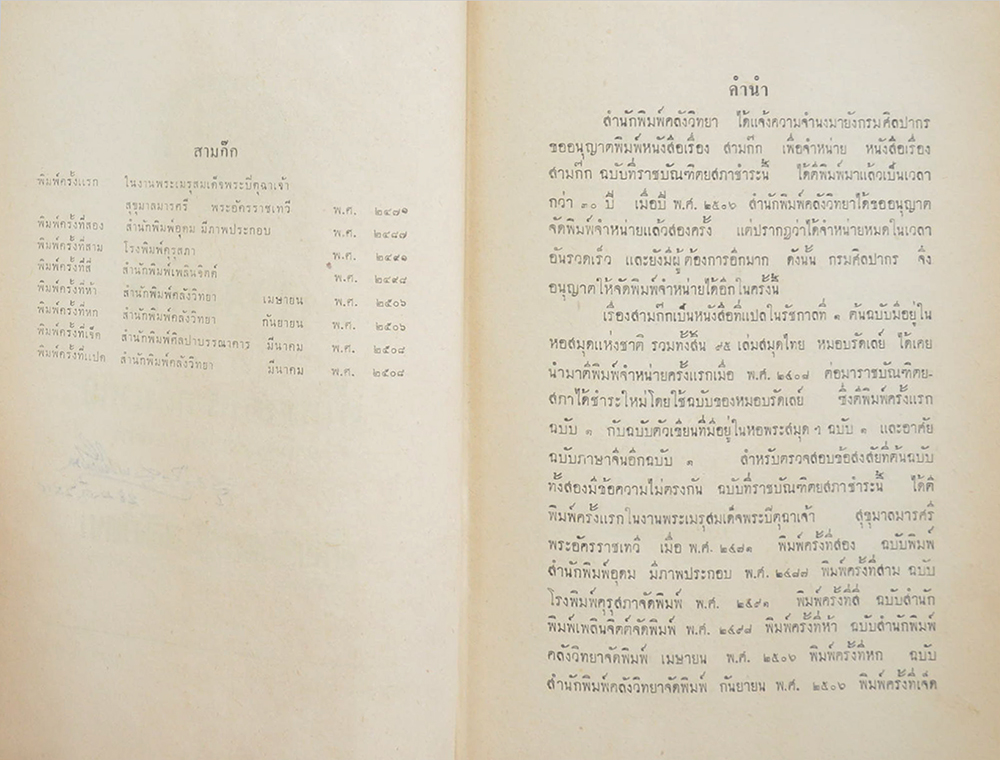 สามก๊ก
พิมพ์ครั้งแรก ในงานพระเมรุสมเด็จพระปิตุฉาเจ้า
สุขุมาลมารศรี พระอัครราชเทวี พ.ศ. ๒๔๗๑
พิมพ์ครั้งที่สอง สำนักพิมพ์อุดม มีภาพประกอบ พ.ศ. ๒๔๘๗
พิมพ์ครั้งที่สาม โรงพิมพ์คุรุสภา พ.ศ. ๒๔๙๑
พิมพ์ครั้งที่สี่ สำนักพิมพ์เพลินจิตต์ พ.ศ. ๒๔๙๘
พิมพ์ครั้งที่ห้า สำนักพิมพ์คลังวิทยา เมษายน พ.ศ. ๒๕๐๖
พิมพ์ครั้งที่หก สำนักพิมพ์คลังวิทยา กันยายน พ.ศ. ๒๕๐๖
พิมพ์ครั้งที่เจ็ด สำนักพิมพ์ศิลปาบรรณาคาร มีนาคม พ.ศ. ๒๕๐๘
พิมพ์ครั้งที่แปด สำนักพิมพ์คลังวิทยา มีนาคม พ.ศ. ๒๕๐๘
คำนำ
สำนักพิมพ์คลังวิทยา ได้แจ้งความจำนงมายังกรมศิลปากร
ขออนุญาตพิมพ์หนังสือเรื่อง สามก๊ก เพื่อจำหน่าย หนังสือเรื่อง
สามก๊ก ฉบับที่ราชบัณฑิตยสภาชำระนี้ ได้ตีพิมพ์มาแล้วเป็นเวลา
กว่า ๓๐ ปี เมื่อปี พ.ศ. ๒๕๐๖ สำนักพิมพ์คลังวิทยาได้ขออนุญาต
จัดพิมพ์จำหน่ายแล้วสองครั้ง แต่ปรากฏว่าได้จำหน่ายหมดในเวลา
อันรวดเร็ว และยังมีผู้ต้องการอีกมาก ดังนั้น กรมศิลปากร จึง
อนุญาตให้จัดพิมพ์จำหน่ายได้อีกในครั้งนี้
เรื่องสามก๊กเป็นหนังสือที่แปลในรัชกาลที่ ๑ ต้นฉบับมีอยู่ใน
หอสมุดแห่งชาติ รวมทั้งสิ้น ๙๕ เล่มสมุดไทย หมอบรัดเลย์ ได้เคย
นำมาตีพิมพ์จำหน่ายครั้งแรกเมื่อ พ.ศ. ๒๔๐๘ ต่อมาราชบัณฑิตย-
สภาได้ชำระใหม่โดยใช้ฉบับของหมอบรัดเลย์ ซึ่งตีพิมพ์ครั้งแรก
ฉบับ ๑ กับฉบับตัวเขียนที่มีอยู่ในหอพระสมุด ฯ ฉบับ ๑ และอาศัย
ฉบับภาษาจีนอีกฉบับ ๑ สำหรับตรวจสอบข้อสงสัยที่ต้นฉบับ
ทั้งสองมีข้อความไม่ตรงกัน ฉบับที่ราชบัณฑิตยสภาชำระนี้ ได้ตี
พิมพ์ครั้งแรกในงานพระเมรุสมเด็จพระปิตุฉาเจ้า สุขุมาลมารศรี
พระอัครราชเทวี เมื่อ พ.ศ. ๒๔๗๑ พิมพ์ครั้งที่สอง ฉบับพิมพ์
สำนักพิมพ์อุดม มีภาพประกอบ พ.ศ. ๒๔๘๗ พิมพ์ครั้งที่สาม ฉบับ
โรงพิมพ์คุรุสภาจัดพิมพ์ พ.ศ. ๒๔๙๑ พิมพ์ครั้งที่สี่ ฉบับสำนัก
พิมพ์เพลินจิตต์จัดพิมพ์ พ.ศ. ๒๔๙๘ พิมพ์ครั้งที่ห้า ฉบับสำนักพิมพ์
คลังวิทยาจัดพิมพ์ เมษายน พ.ศ. ๒๕๐๖ พิมพ์ครั้งที่หก ฉบับ
สำนักพิมพ์คลังวิทยาจัดพิมพ์ กันยายน พ.ศ. ๒๕๐๖ พิมพ์ครั้งที่เจ็ด